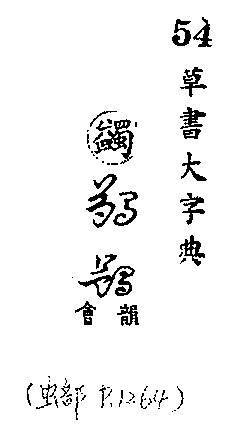 54
草書大字典
蠲
蠲
蠲
韻會
(虫部 P.1264)